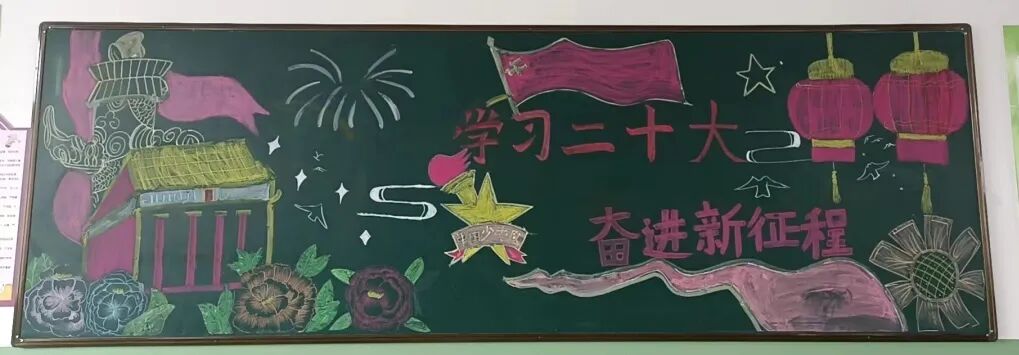 学习二十大
奋进新征程
中国少先队